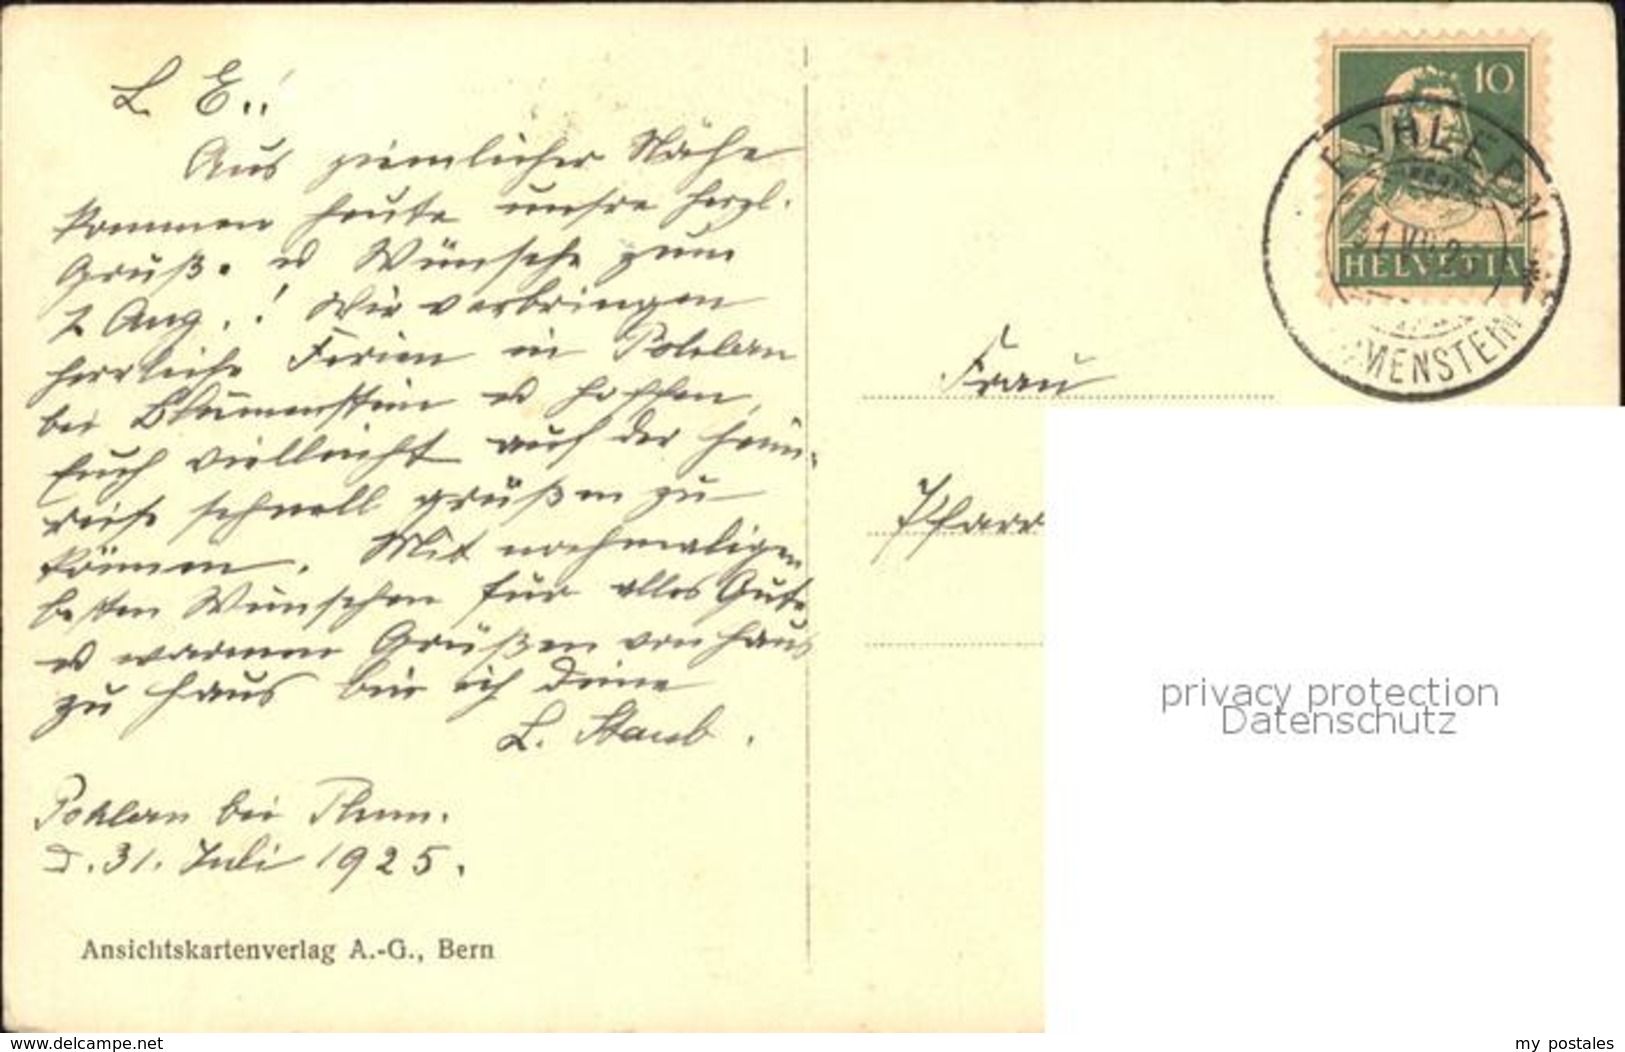 L. E.!
Aus ziemlicher Nähe
kommen heute unsre herzl.
Grüß. u Wünsche zum
2 Aug.! Wir verbringen
herrliche Ferien in Pohlern
bei Blumenstein u hoffen,
Euch vielleicht auf der Heim-
reise schnell grüßen zu
können. Mit nochmaligen
besten Wünschen für alles Gute
u warmen Grüßen von Haus
zu Haus bin ich Deine
L. Staub.
Pohlern bei Thun.
d. 31. Juli 1925.
Ansichtskartenverlag A.-G., Bern
10
HELVETIA
POHLERN
31 VII 25
UMENSTEIN
Frau
Pfarr
privacy protection
Datenschutz
www.delcampe.net
my postales